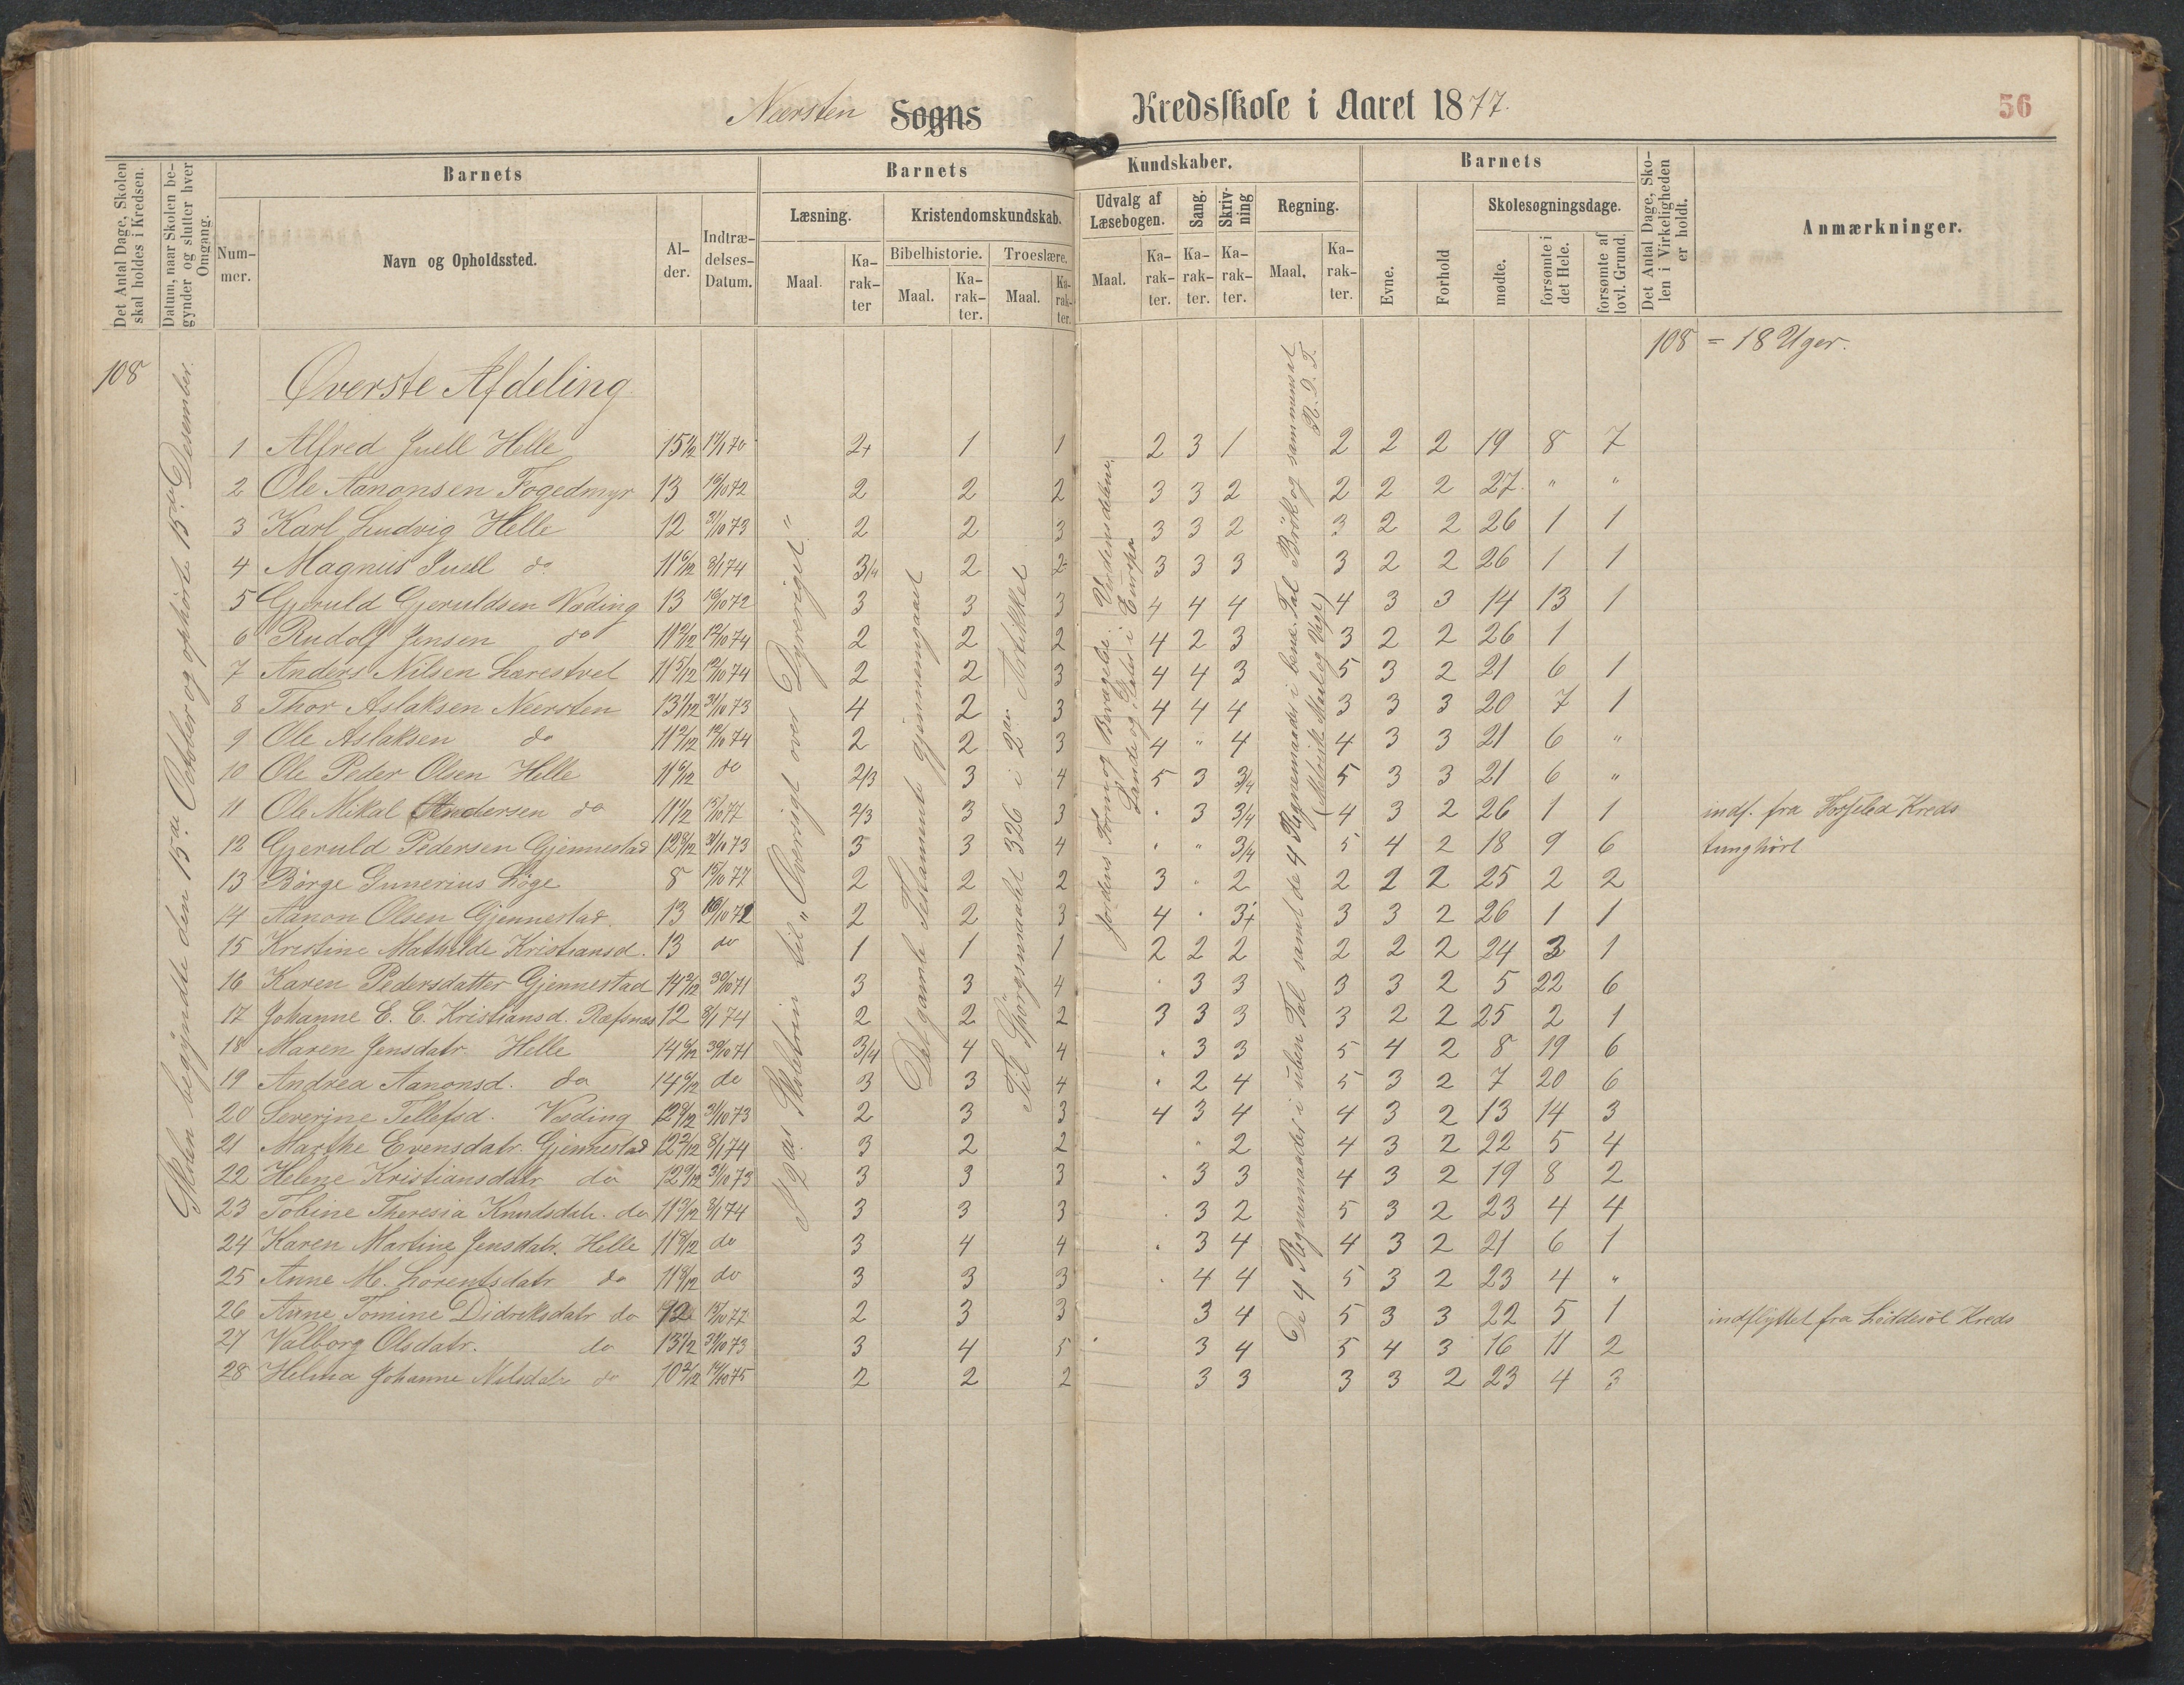 Nærsten Sogns Kredsskole i Aaret 1877.
56
Det Antal Dage, Skolen skal holdes i Kredsen.
Datum, naar Skolen begynder og slutter hver Omgang.
Barnets
Nummer.
Navn og Opholdssted.
Alder.
Indtrædelses-Datum.
Barnets Kundskaber.
Læsning.
Maal.
Karakter
Kristendomskundskab.
Bibelhistorie.
Maal.
Karakter.
Troeslære.
Maal.
Karakter.
Udvalg af Læsebogen.
Maal.
Karakter.
Sang.
Karakter.
Skrivning
Karakter.
Regning.
Maal.
Karakter.
Barnets
Evne.
Forhold
Skolesøgningsdage.
mødte.
forsømte i det Hele.
forsømte af lovl. Grund.
Det Antal Dage, Skolen i Virkeligheden er holdt.
Anmærkninger.
108
Skolen begyndte den 15de October og ophörte 15de Desember.
Øverste Afdeling
108 = 18 Uger.
til "Oversigt over Dyreriget"
Det gamle Testamente gjennemgaaet
Til Spörgsmaalet 326 i 2den Artikkel
Jordens Form og Bevægelse. Verdensdelene. Lande og Stæder i Europa
De 4 Regnemaader i uben. Tal samt de 4 Regnemaader i benæ. Tal Brök og sammensat R. d. T.
(Metrisk Maal og Vægt)
1 Alfred Juell Helle 2+ 1 1 2 3 1 2 2 2 19 8 7
2 Ole Aanonsen Fogedmyr 13 2 2 2 3 3 2 2 2 2 27 " "
3 Karl Ludvig Helle 12 31/10 73 2 2 3 3 3 2 3 2 2 26 1 1
4 Magnus Juell do 11 6/12 8/1 74 3/4 2 2 3 3 3 3 2 2 26 1 1
5 Gjeruld Gjeruldsen Væding 13 3 3 3 4 4 4 4 3 3 14 13 1
6 Rudolf Jensen do 12/10 74 2 2 2 4 2 3 3 2 2 26 1
7 Anders Nilsen Larestvet 11 5/12 12/10 74 2 2 3 4 4 3 5 3 2 21 6 1
8 Thor Aslaksen Nærsten 13 1/12 31/10 73 4 2 3 4 4 4 3 3 3 20 7 1
9 Ole Aslaksen do 12/10 74 2 2 3 4 " 4 4 3 3 21 6 "
10 Ole Peder Olsen Helle 11 6/12 do 2/3 3 4 5 3 3/4 5 3 3 21 6 "
11 Ole Mikal Andersen do 11 1/2 15/10 77 2/3 3 3 . 3 3/4 4 3 2 26 1 1 indf. fra Kreds
12 Gjeruld Pedersen Gjennestad 31/10 73 3 3 4 . " 3/4 5 4 2 18 9 6 tunghört
13 Börge Gunerius Löge 8 15/10 77 2 2 2 3 " 2 2 2 2 25 2 2
14 Aanon Olsen Gjennestad. 13 2 2 3 4 . 3+ 3 3 2 26 1 1
15 Kristine Mathilde Kristiansd. 13 do 1 1 1 2 2 2 2 2 2 24 3 1
16 Karen Pedersdatter Gjennestad 14 2/12 30/10 71 3 3 4 . 3 3 3 3 2 5 22 6
17 Johanne E. C. Kristiansd. Ræfsnæs 12 8/1 74 2 2 2 3 3 3 3 2 2 25 2 1
18 Maren Jensdatr. Helle 30/10 71 3/4 4 4 . 3 3 5 4 2 8 19 6
19 Andrea Aanonsd. do do 3 3 4 . 2 4 5 3 2 7 20 6
20 Severine Tellefsd. Væding 31/10 73 2 3 3 4 3 4 4 3 2 13 14 3
21 Marthe Evensdatr. Gjennestad 12 2/12 8/1 74 3 2 2 . 2 4 3 2 22 5 4
22 Helene Kristiansdatr do 31/10 73 3 3 3 . 3 3 4 3 2 19 8 2
23 Tobine Theresia Knudsdatr. do 11 3/12 8/1 74 3 3 3 . 3 2 5 3 2 23 4 4
24 Karen Martine Jensdatr. Helle 11 8/12 do 3 4 4 . 3 4 4 3 2 21 6 1
25 Anne M. Lorentsdatr do 11 8/12 do 3 3 3 . 4 4 5 3 2 23 4 "
26 Anne Tomine Didreksdatr do 15/10 77 2 3 3 3 4 5 3 3 22 5 1 indflyttet fra Löddesöl Kreds
27 Valborg Olsdatr. do 31/10 73 3 4 5 . 3 4 5 4 3 16 11 2
28 Helma Johanne Nilsdatr do 10 2/12 2 2 2 3 3 3 3 2 23 4 3